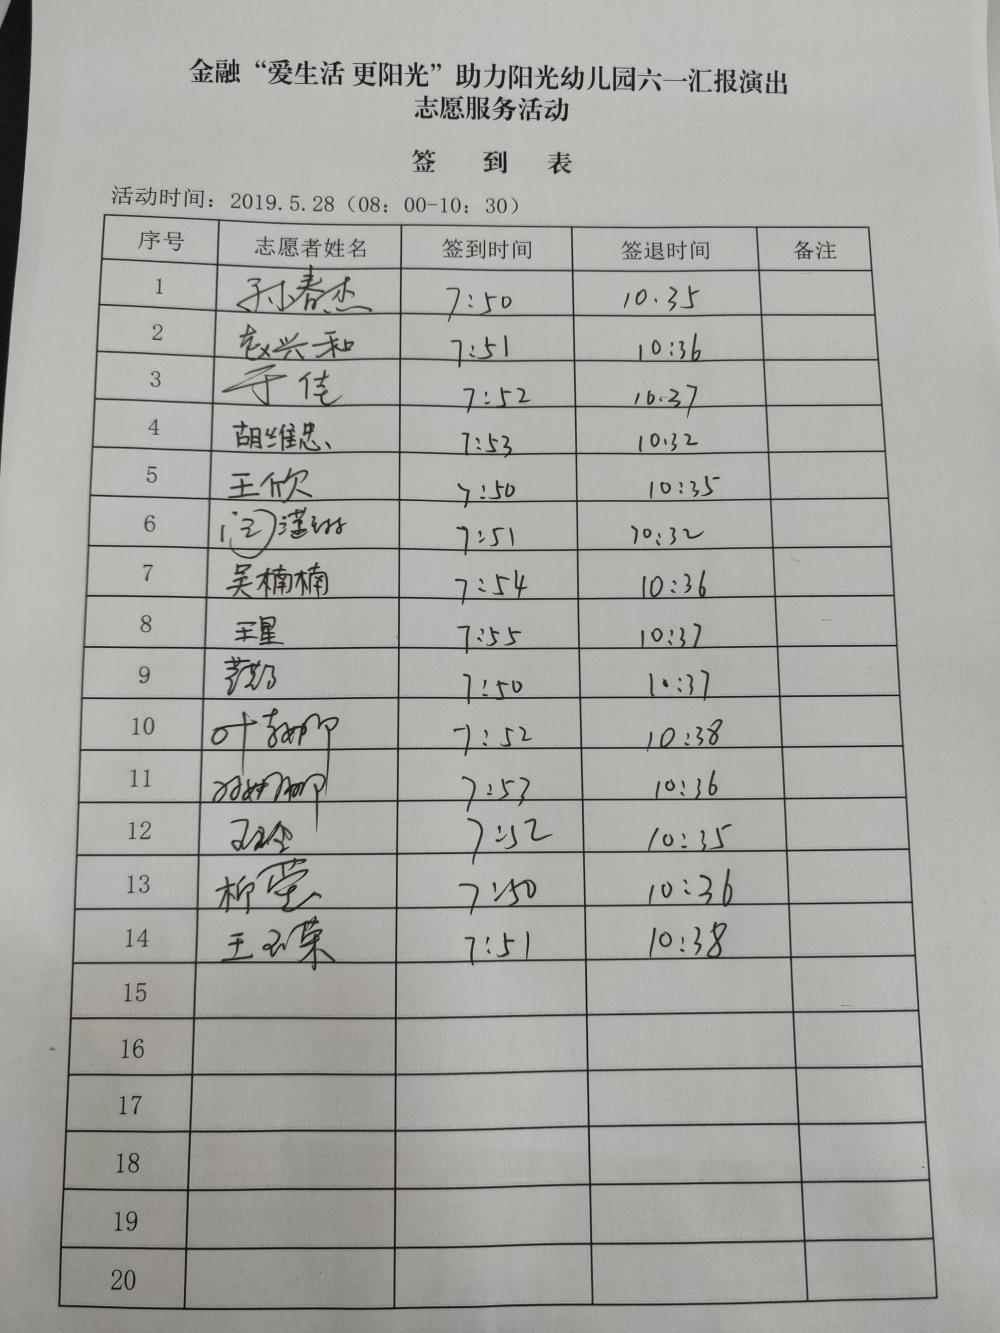 金融“爱生活 更阳光”助力阳光幼儿园六一汇报演出
志愿服务活动
签 到 表
活动时间：2019.5.28（08：00-10：30）
序号 志愿者姓名 签到时间 签退时间 备注
1 孙春杰 7:50 10.35
2 赵兴和 7:51 10:36
3 于佳 7:52 10.37
4 胡维忠 7:53 10.32
5 王欣 7:50 10:35
6 7:51 10:32
7 吴楠楠 7:54 10:36
8 王星 7:55 10:37
9 7:50 10:37
10 叶 7:52 10:38
11 7:53 10:36
12 7:52 10:35
13 柳莹 7:50 10:36
14 王玉荣 7:51 10:38
15
16
17
18
19
20